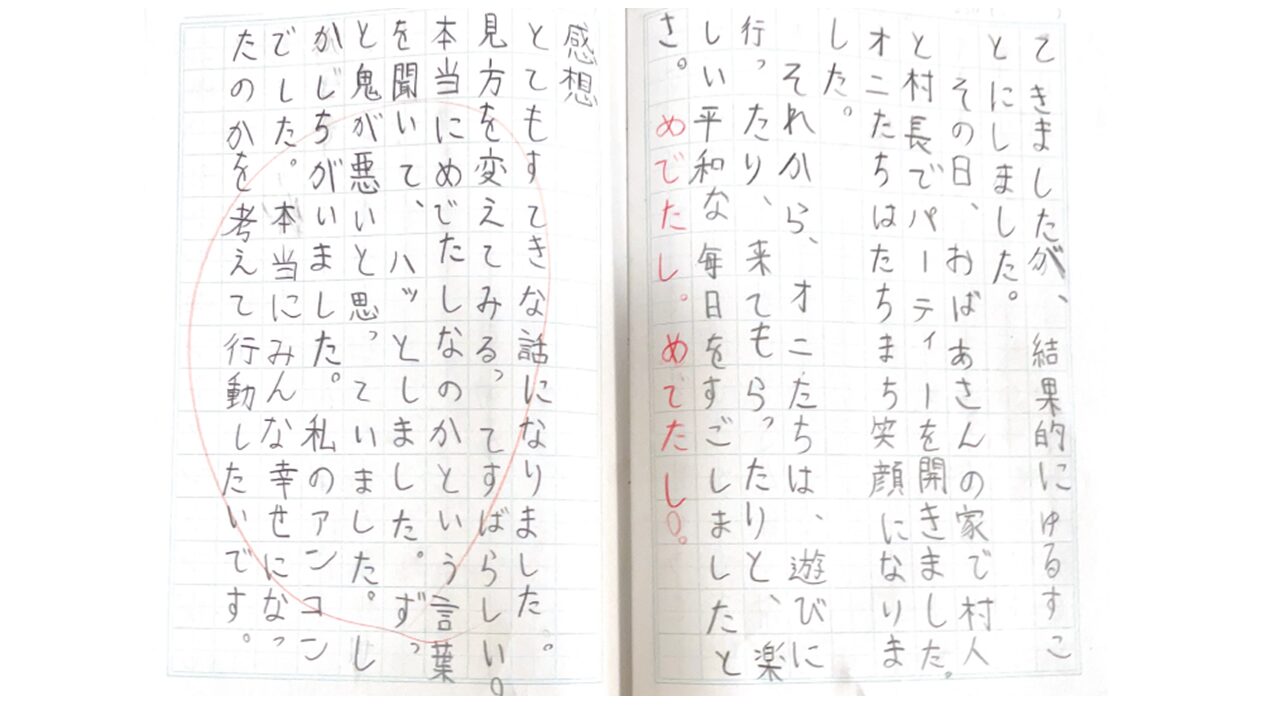 てきましたが、結果的にゆるすこ
とにしました。
その日、おばあさんの家で村人
と村長でパーティーを開きました。
オニたちはたちまち笑顔になりま
した。
それから、オニたちは、遊びに
行ったり、来てもらったりと、楽
しい平和な毎日をすごしましたと
さ。めでたし。めでたし。
感想
とてもすてきな話になりました。
見方を変えてみるってすばらしい。
本当にめでたしなのかという言葉
を聞いて、ハッとしました。ずっ
と鬼が悪いと思っていました。し
かしちがいました。私のアンコン
でした。本当にみんな幸せになっ
たのかを考えて行動したいです。